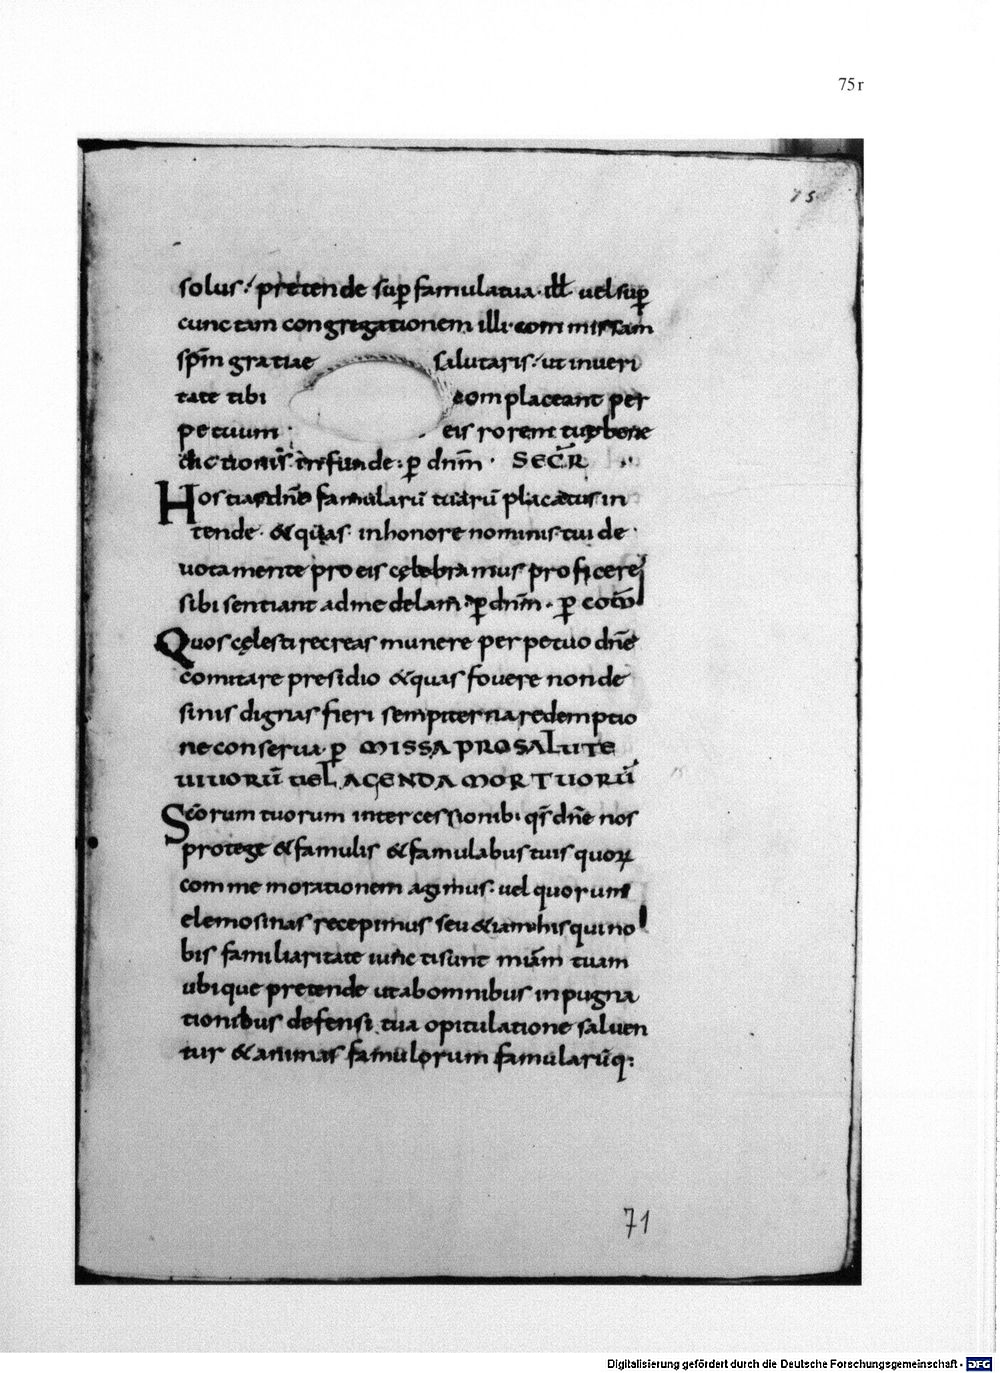 75r
75
solus · pretende sup famulatua · ill vel sup
cunctam congregationem illi · commissam
spm̄ gratiae salutaris · ut in veri
tate tibi complaceant per
petuum eis rorem tuę bene
dictionis infunde · p dnm̄ · SECR̄
Hostias dnē famularū tuarū placatus in
tende · & quas · in honore nominis tui de
votamente pro eis cęlebramus proficere
sibi sentiant ad medelam · p dnm̄ · p
Quos cęlesti recreas munere perpetuo dnē
comitare presidio & quas fovere non de
sinis dignas fieri sempiterna redemptio
ne conserva · p MISSA PRO SALUTE
VIVORŪ VEL AGENDA MORTUORŪ
Scōrum tuorum intercessionib; qs dnē nos
protege & famulis & famulabus tuis quorꝝ
commemorationem agimus · vel quorum
elemosinas recepimus seu & iam his qui no
bis familiaritate iuncti sunt miām tuam
ubique pretende ut ab omnibus inpugna
tionibus defensi tua opitulatione salven
tur & animas famulorum famularūq;
71
Digitalisierung gefördert durch die Deutsche Forschungsgemeinschaft - DFG